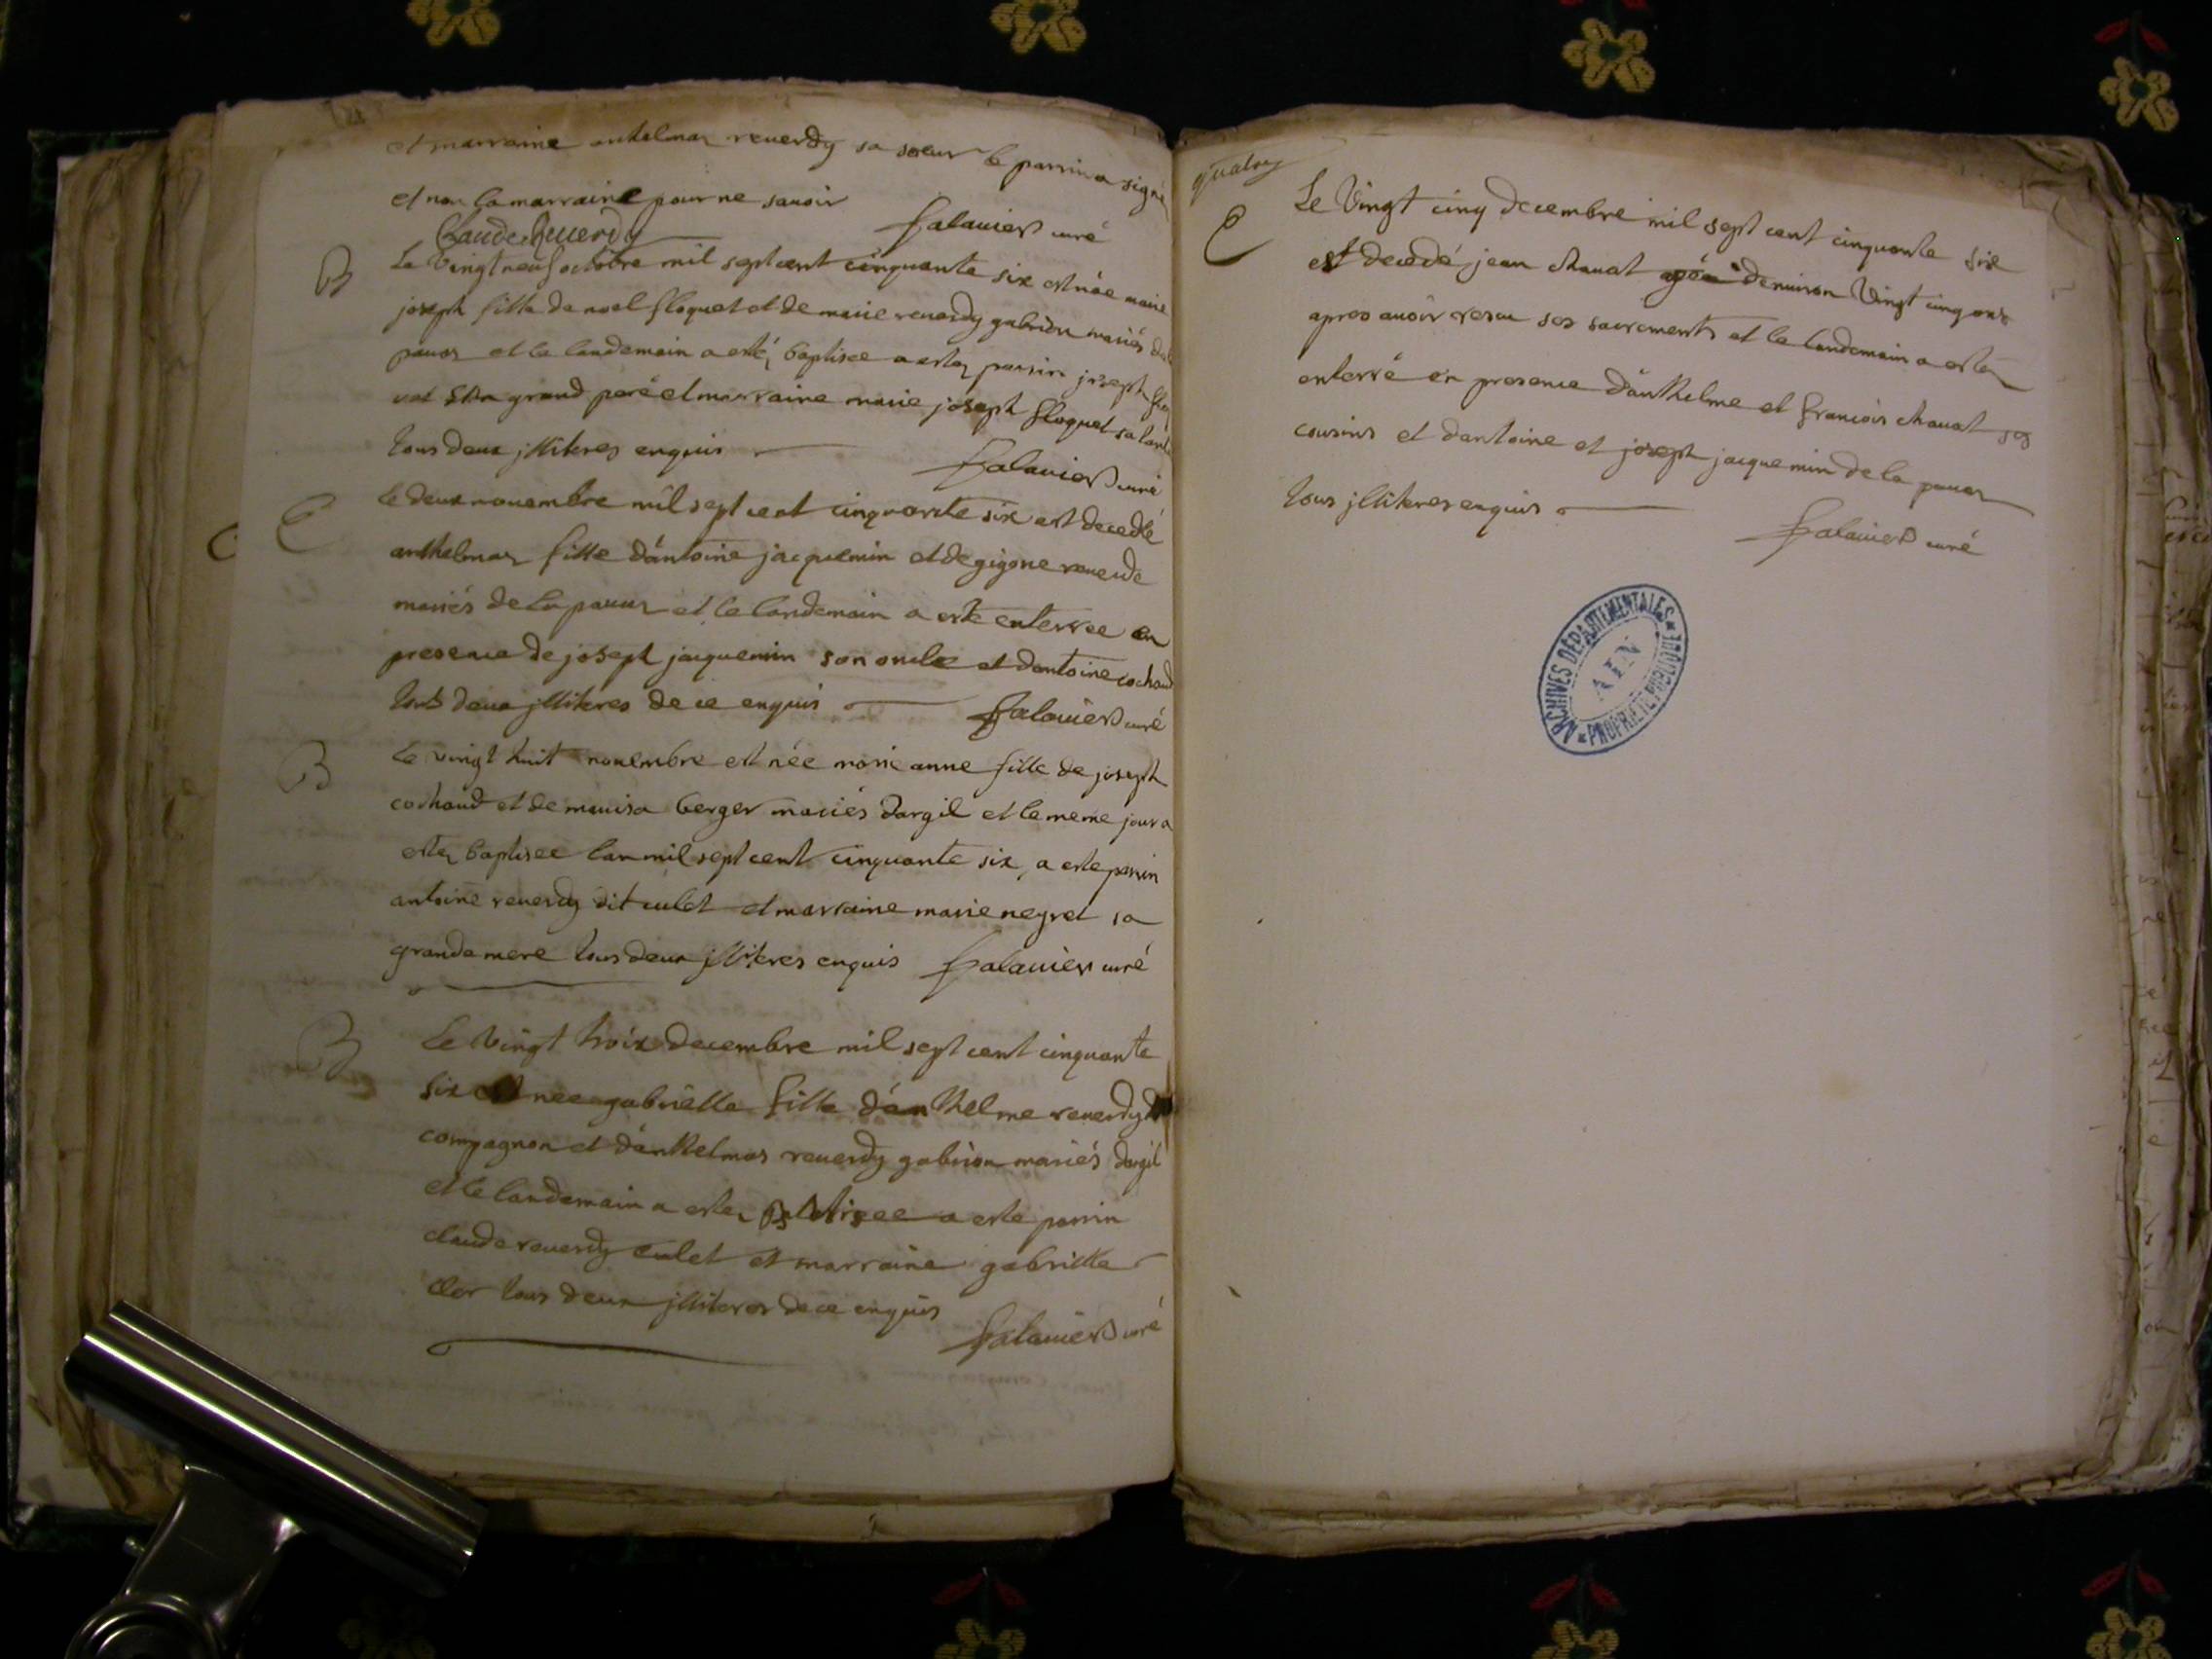 et marraine anthelmaz reuerdy sa soeur le parrin a signé
et non la marraine pour ne sauoir
Claude Reuerdy falauier curé
B Le Vingt neuf octobre mil sept cent cinquante six est née marie
joseph fille de noel floquet et de marie reuerdy gabrion mariés de la
pauaz et le landemain a esté baptisee a estez parrin joseph
son grand pere et marraine marie joseph floquet sa tante
tous deux jlliteres enquis falauier curé
E le deux nouembre mil sept cent cinquante six est decedé
anthelmaz fille d'antoine jacquemin et de gigone reuerde
mariés de la pauaz et le landemain a este enterree en
presence de joseph jacquemin son oncle et dantoine cochaud
touts deux jlliteres de ce enquis falauier curé
B Le vingt huit nouembre est née marie anne fille de joseph
cochaud et de mauisa berger mariés dargil et le meme jour a
estez baptisee lan mil sept cent cinquante six, a este parrin
antoine reuerdy dit culet et marraine marie neyret sa
grande mere tous deux jlliteres enquis falauier curé
B Le Vingt troix decembre mil sept cent cinquante
six est nee gabrielle fille d'anthelme reuerdy dt
compagnon et d'anthelmaz reuerdy gabrion mariés dargil
et le landemain a estez batisee a este parrin
claude reuerdy culet et marraine gabrielle
clor tous deux jlliteres de ce enquis
falauier curé
quatorz
E Le Vingt cinq decembre mil sept cent cinquante six
est decedé jean chauat agée denuiron Vingt cinq ans
apres auoir resu ses sacrements et le landemain a estez
enterré en presence d'anthelme et francois chauat ses
cousins et dantoine et joseph jacquemin de la pauaz
tous jlliteres enquis
falauier curé
ARCHIVES DÉPARTEMENTALES
AIN
PROPRIÉTÉ PUBLIQUE